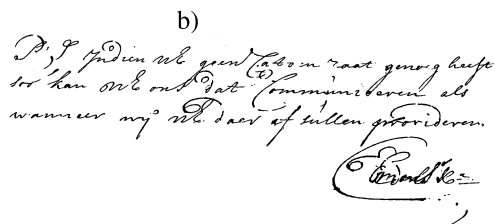 b)
P: S Jndien UE geen Cattoen zaat genoeg heeft
soo kan UE ons dat Communiceeren als
wanneer wij UE daer af sullen provideren